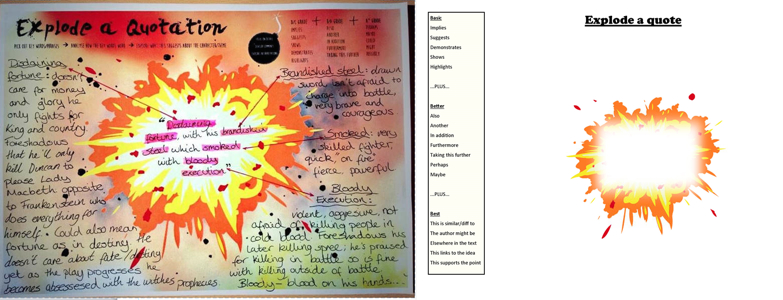 Explode a Quotation
Disdaining
fortune: doesn't
care for money
and glory he
only fights for
king and country.
Foreshadows
that he'll only
kill Duncan to
please Lady
Macbeth opposite
to Frankenstein who
does everything for
himself. Could also mean
fortune as in destiny. He
doesn't care about fate/destiny
yet as the play progresses he
becomes obsessesed with the witches prophecies.
"Disdaining
fortune with his brandish'd
steel which smoked
with bloody
execution"
Brandished steel: drawn
sword, isn't afraid to
charge into battle,
very brave and
courageous.
Smoked: very
skilled fighter,
quick, 'on fire'
fierce, powerful
Bloody
Execution:
violent, aggresive, not
afraid of killing people in
cold blood. Foreshadows his
later killing spree; he's praised
for killing in battle so is fine
with killing outside of battle.
Bloody - blood on his hands...
Basic
Implies
Suggests
Demonstrates
Shows
Highlights
...PLUS...
Better
Also
Another
In addition
Furthermore
Taking this further
Perhaps
Maybe
...PLUS...
Best
This is similar/diff to
The author might be
Elsewhere in the text
This links to the idea
This supports the point
Explode a quote